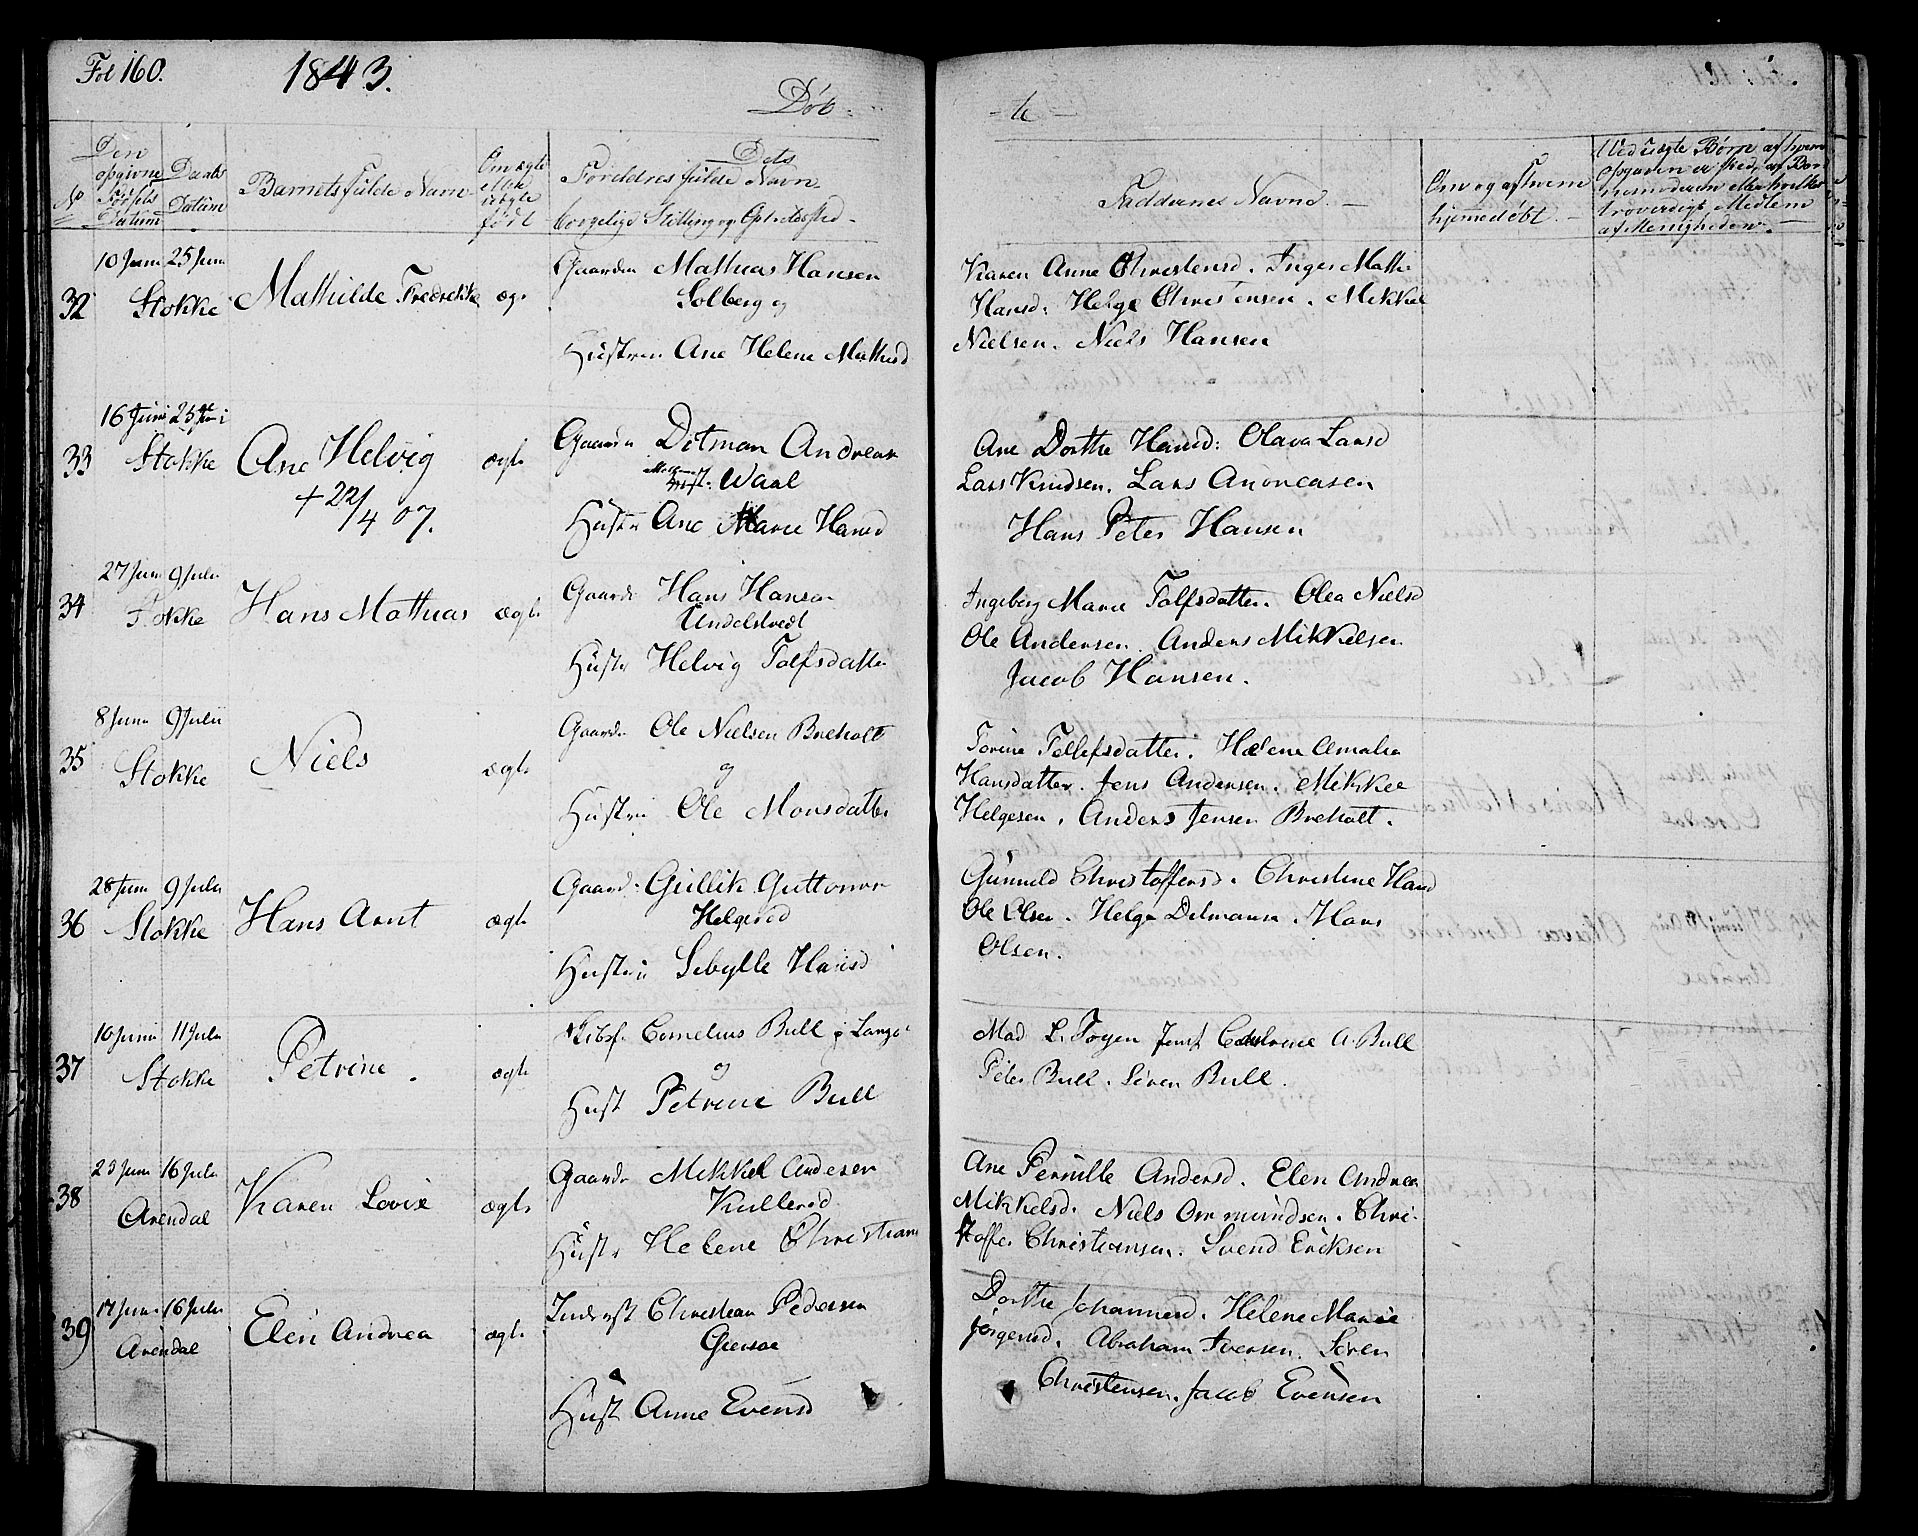 Fol 160. 1843.
Døb- -te
No
Den opgivne Førsels Datum
Daabs Datum
Barnets fulde Navn
Om ægte eller uægte født
Dets Forældres fulde Navn
borgelige Stilling og Opholdssted -
Faddernes Navne. -
Om og af hvem hjemmedøbt. -
32
10 Juni 25 Juni
Stokke
Mathilde Fredrekke
æg.
Gaardm Mathias Hansen
Solberg og
Hustru Ane Helene Mathisd
Karen Anne Christensd. Inger Mathi
Hansd: Helge Christensen. Mikkel
Nielsen. Niels Hansen
33
16 Juni 25 Juni
Stokke
Ane Helvig
+ 22/4 07.
ægte
Gaardm Ditman Andreas
Waal
Hustr Ane Marie Hansd
Ane Dorthe Hansd: Olava Larsd
Lars Knudsen. Lars Andreasen
Hans Peter Hansen
34
27 Juni 9 Juli
Stokke
Hans Mathias
ægte
Gaardm Hans Hansen
Undelstvedt
Hustr Helvig Tolfsdatter
Ingeborg Marie Tolfsdatter. Olea Nielsd
Ole Andersen. Anders Mikkelsen
Jacob Hansen.
35
8 Juni 9 Julii
Stokke
Niels
ægte
Gaardm Ole Nielsen Breholt
og
Hustru Ole Monsdatter
Torine Tollefsdatter. Helene Amalia
Hansdatter. Jens Andersen. Mikkel
Helgesen. Anders Jensen Breholt.
36
28 Juni 9 Juli
Stokke
Hans Arnt
ægte
Gaard: Gullik Guttormr
Helgerød
Hustru Sibylle Hansd
Gunnild Christoffersd. Christine Hansd
Ole Olsen. Helge Ditmansn. Hans
Olsen.
37
10 Juni 11 Juli
Stokke
Petrine.
ægte
Skibsf. Cornelius Bull
og
Hust Petrine Bull
Mad L. Foyen Jomf Cathrine A. Bull
Peter Bull. Søren Bull.
38
25 Juni 16 Juli
Arendal
Karen Lovise
ægte
Gaardm Mikkel Andersen
Kullerød
Hustr Helene Christians
Ane Pernille Andersd. Elen Andrea
Mikkelsd. Niels Ommundsen. Chri-
stoffer Christiansen. Svend Ericksen
39
17 Juni 16 Juli
Arendal
Elen Andrea
ægte
Inderst Christian Pedersen
Gjersøe
Hust Anne Evensd
Dorthe Johannesd. Helene Marie
Jørgensd. Abraham Iversen. Søren
Christensen. Jacob Evensen